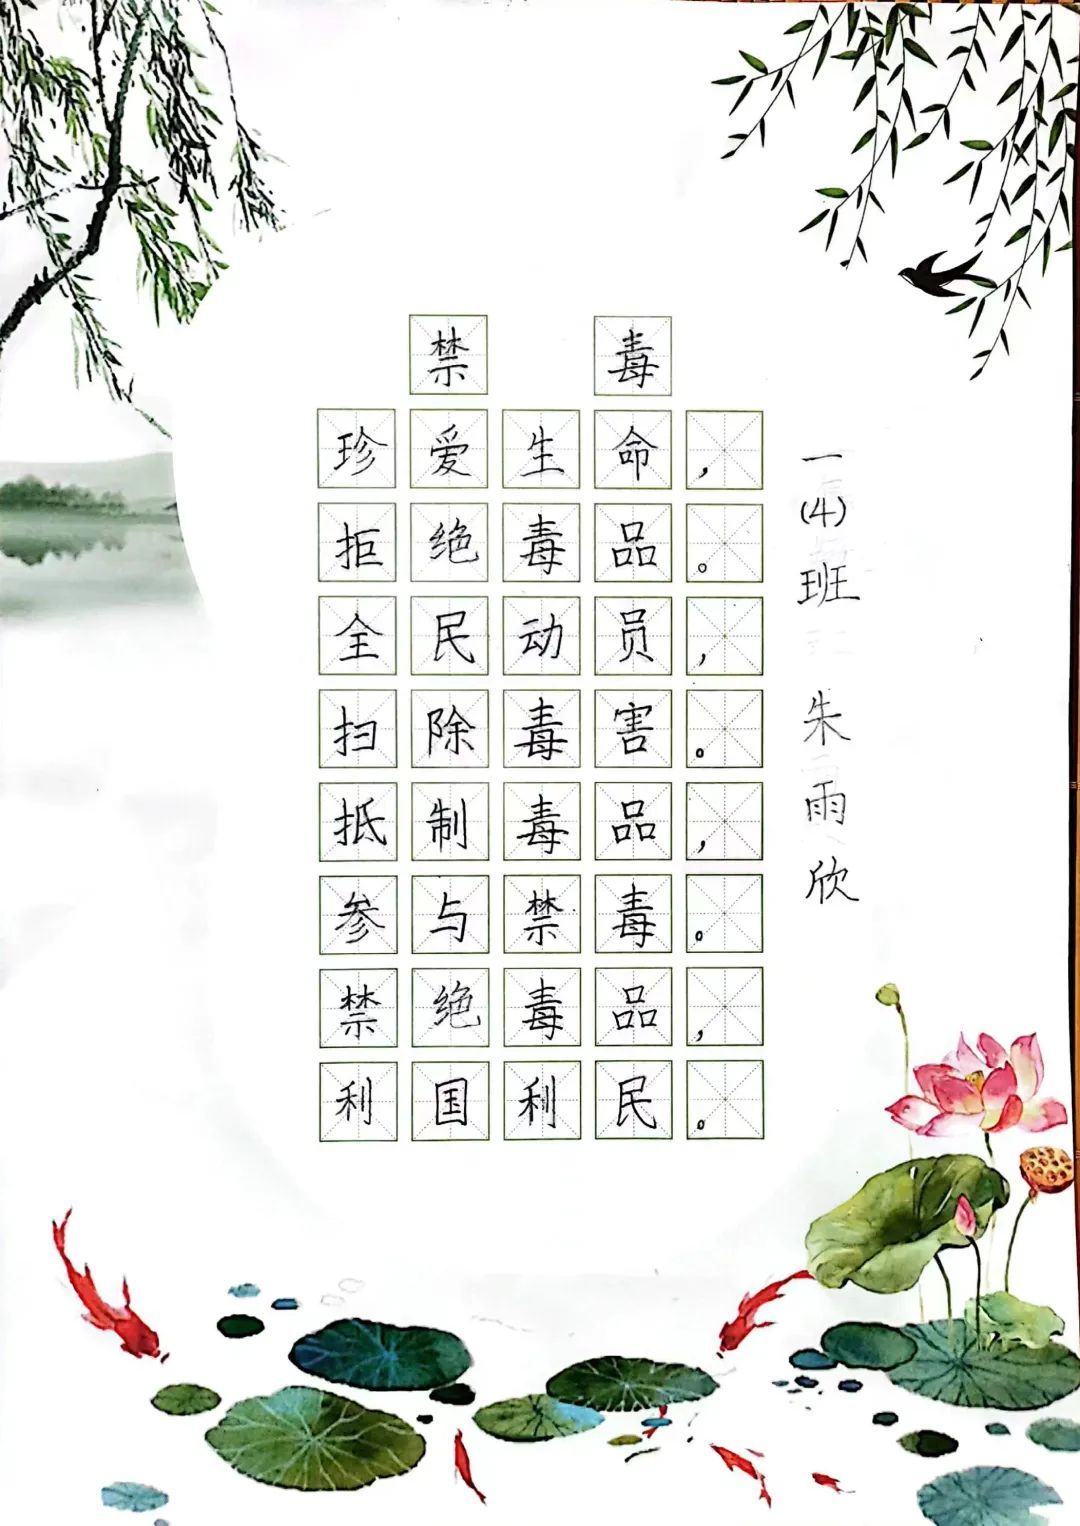 禁毒
珍爱生命，
拒绝毒品。
全民动员，
扫除毒害。
抵制毒品，
参与禁毒。
禁绝毒品，
利国利民。
一(4)班 朱雨欣